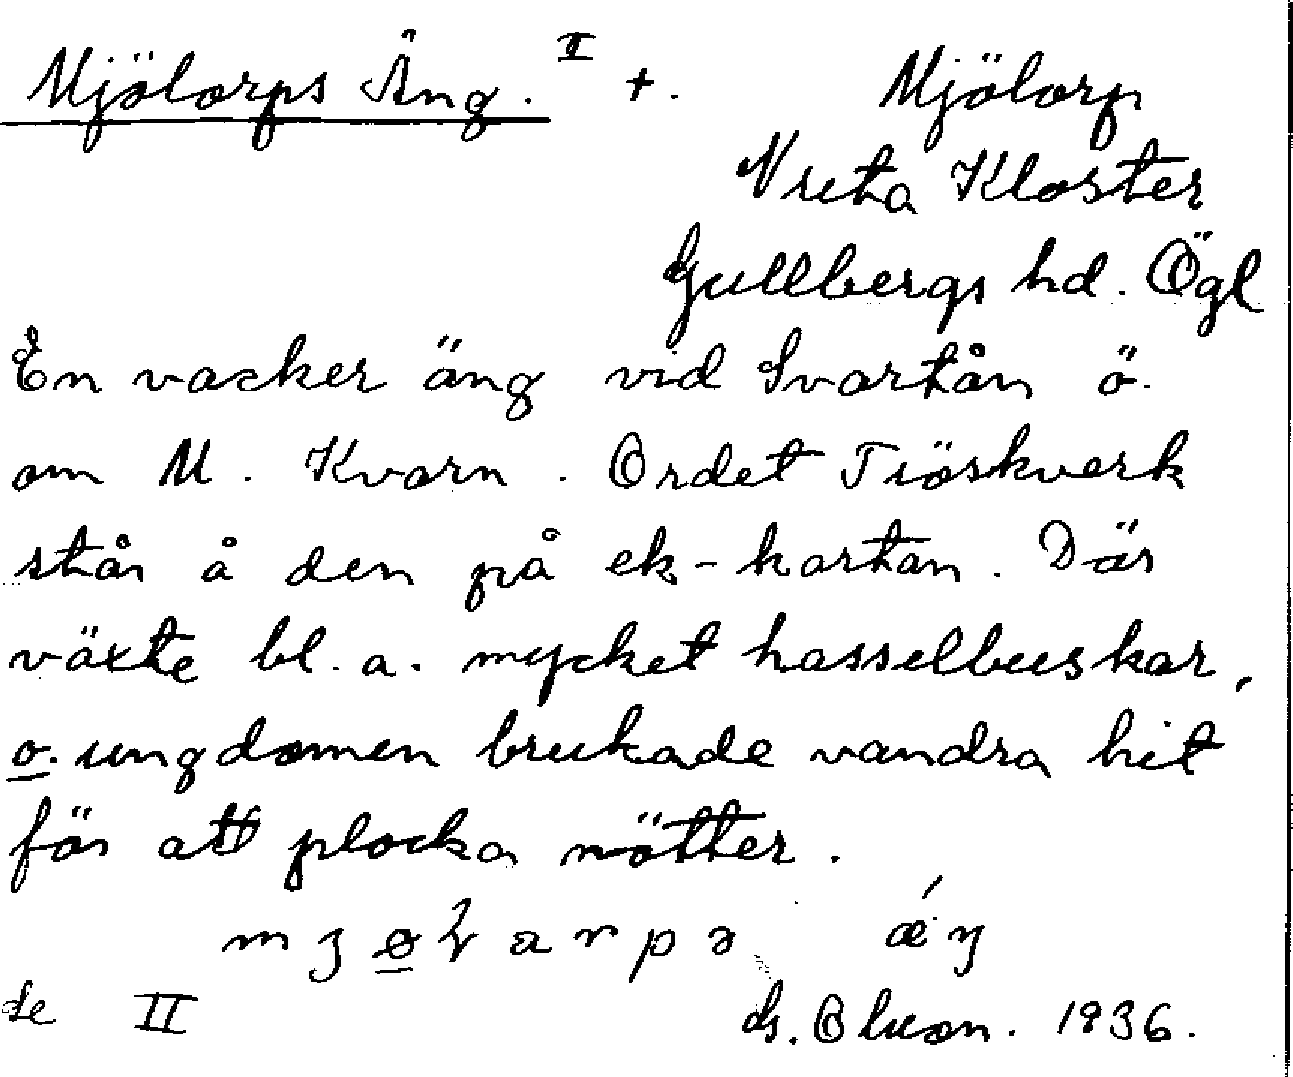 Mjölorps Äng. II +. Mjölorp
Vreta Kloster
Gullbergs hd. Ögl
En vacker äng vid Svartån ö.
om M. Kvarn. Ordet Tröskverk
står å den på ek-kartan. Där
växte bl. a. mycket hasselbuskar,
o. ungdomen brukade vandra hit
för att plocka nötter.
Se II G. Olson. 1936.